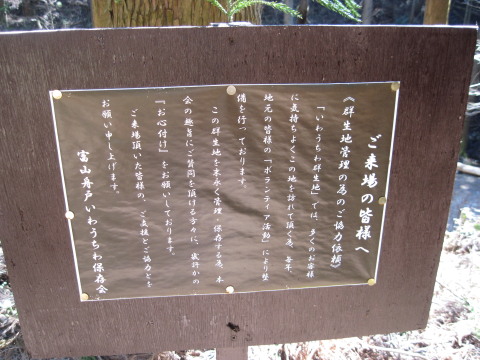 ご来場の皆様へ
《群生地管理の為のご協力依頼》
「いわうちわ群生地」では、多くのお客様
に気持ちよくこの地を訪れて頂く為、毎年、
地元の皆様の「ボランティア活動」により整
備を行っております。
この群生地を末永く管理・保存する為、本
会の趣旨にご賛同を頂ける方々に、幾許かの
『お心付け』をお願いしております。
ご来場頂いた皆様の、ご支援とご協力とを
お願い申し上げます。
富山舟戸いわうちわ保存会